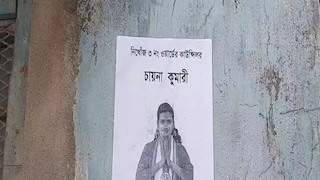 নিখোঁজ ৩ নং ওয়ার্ডের কাউন্সিলর
চায়না কুমারী